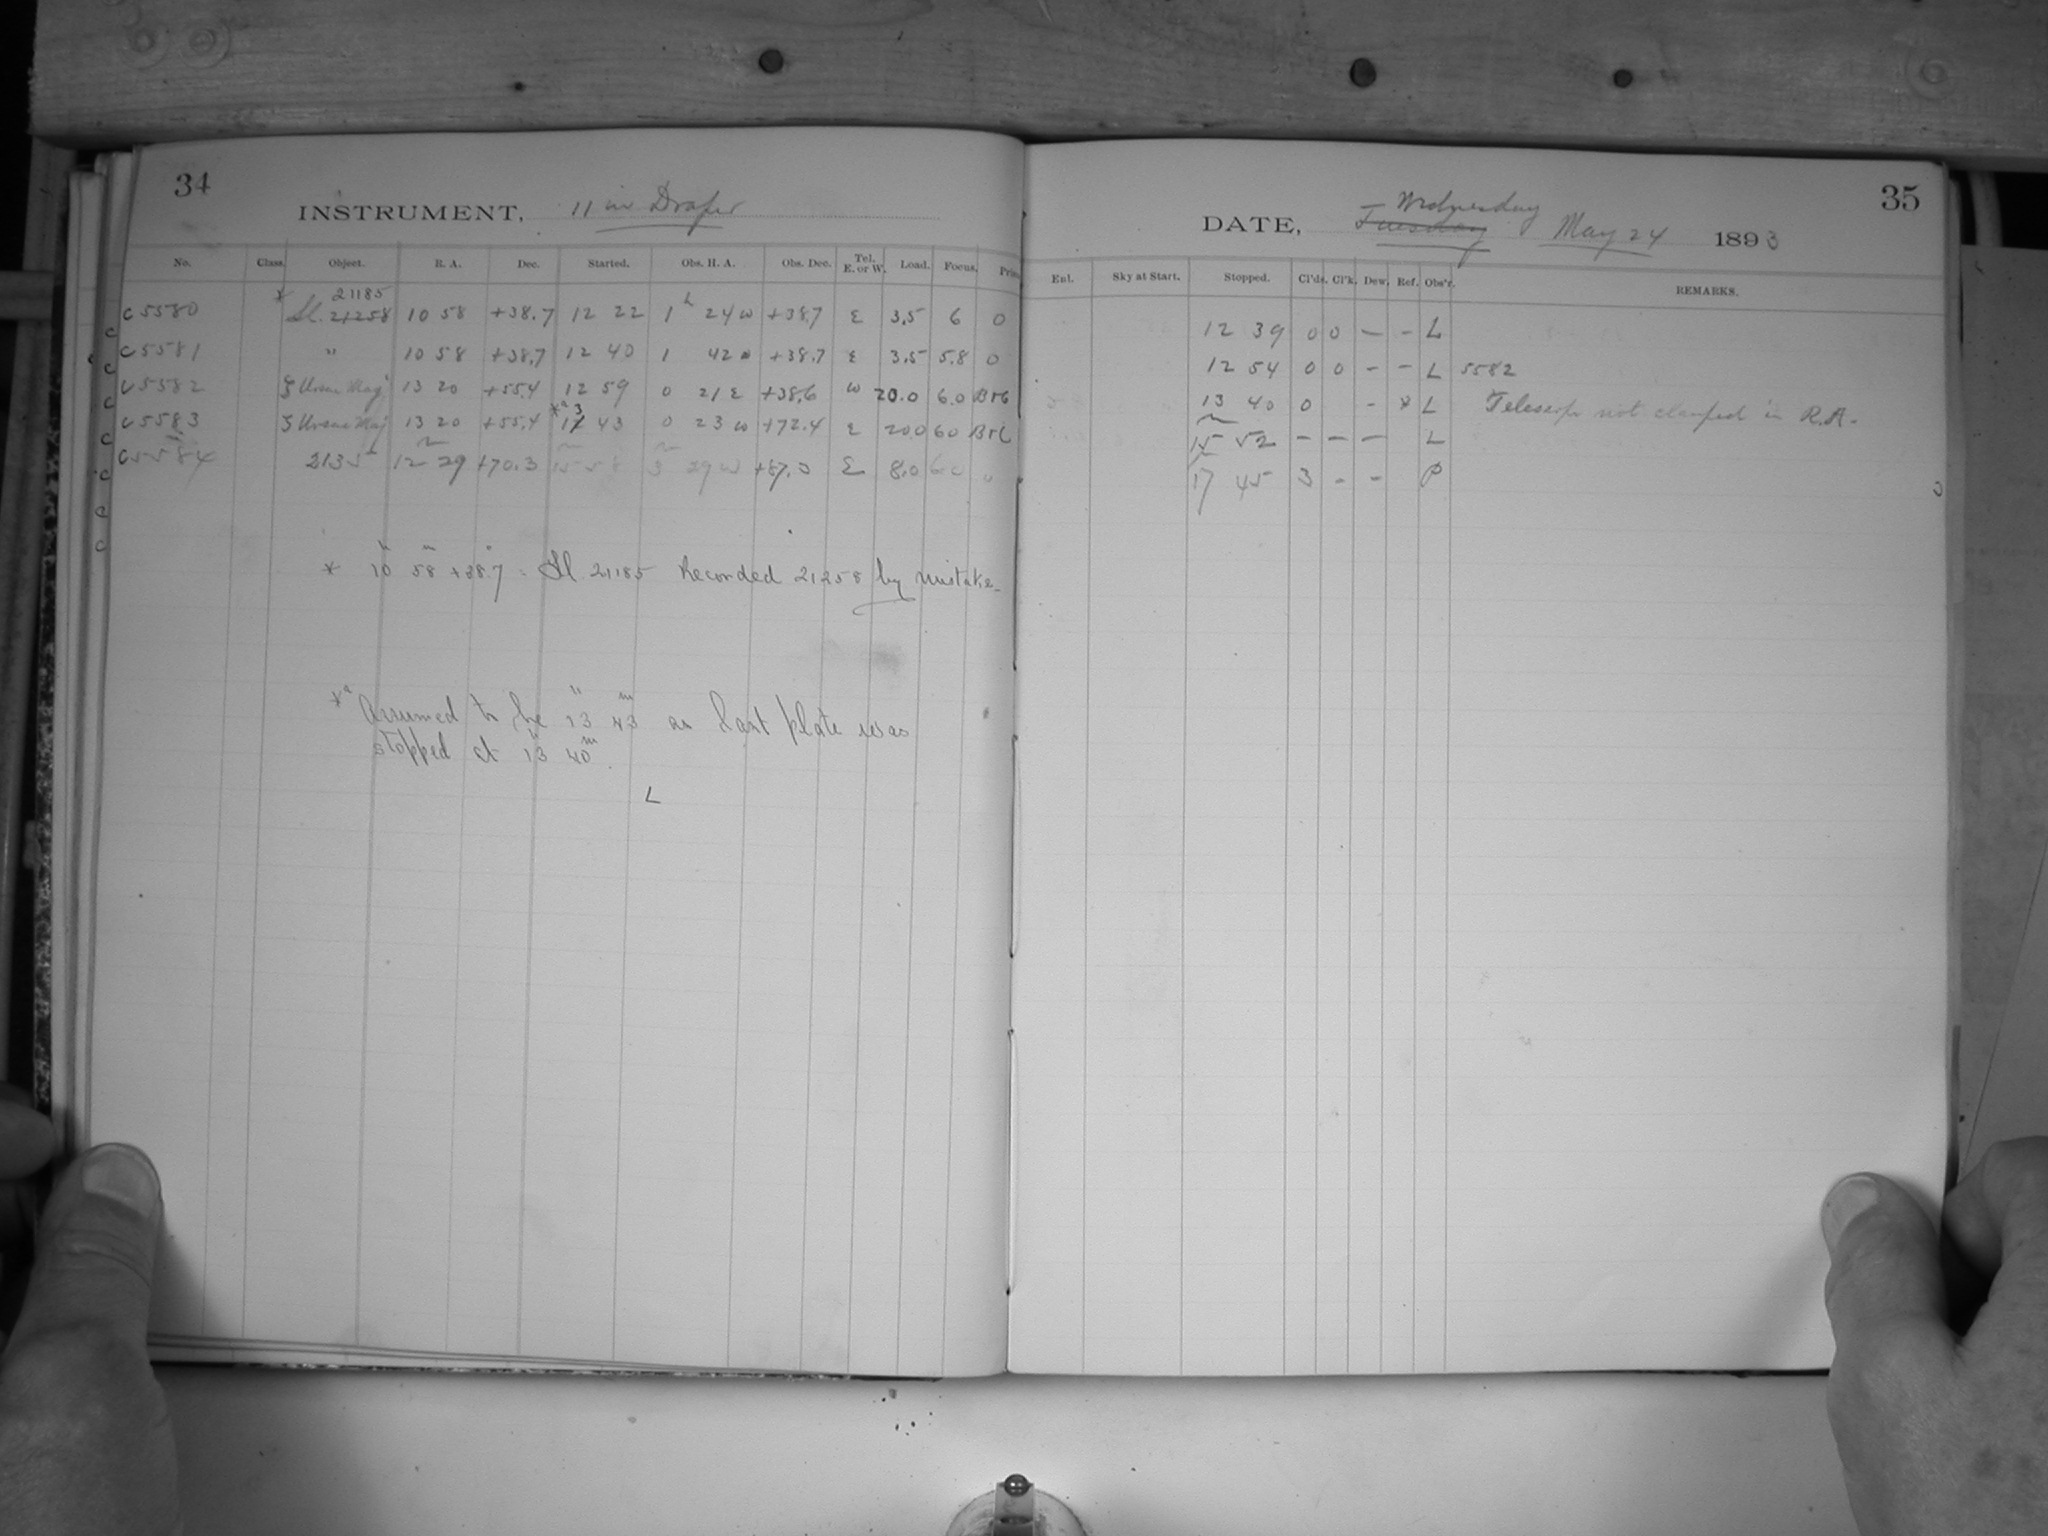 34
INSTRUMENT, 11 in Draper
No. Class. Object. R. A. Dec. Started. Obs. H. A. Obs. Dec. Tel. E. or W. Load. Focus.
* 21185
C 5580 21258 10 58 +38.7 12 22 1 h 24 w +38.7 E 3.5 6 0
C 5581 " 10 58 +38.7 12 40 1 42 +38.7 E 3.5 5.8 0
C 5582 ζ Ursae Maj 13 20 +55.4 12 59 0 21 E +38.6 W 20.0 6.0
C 5583 ζ Ursae Maj 13 20 +55.4 *a 13 43 0 23 w +72.4 E 20.0 60
C 5584 2135 12 29 +70.3 15 58 3 29 w +87.0 E 8.0 60 "
* 10 h 58 m +38°.7 = 21185 Recorded 21258 by mistake
*a Assumed to be 13 h 43 m as last plate was
stopped at 13 h 40 m.
L
35
DATE, Tuesday Wednesday May 24 1893
Enl. Sky at Start. Stopped. Cl'ds. Cl'k. Dew. Ref. Obs'r. REMARKS.
12 39 0 0 — - L
12 54 0 0 - - L 5582
13 40 0 - * L Telescope not clamped in R.A.
15 52 - - - L
17 45 3 - - P